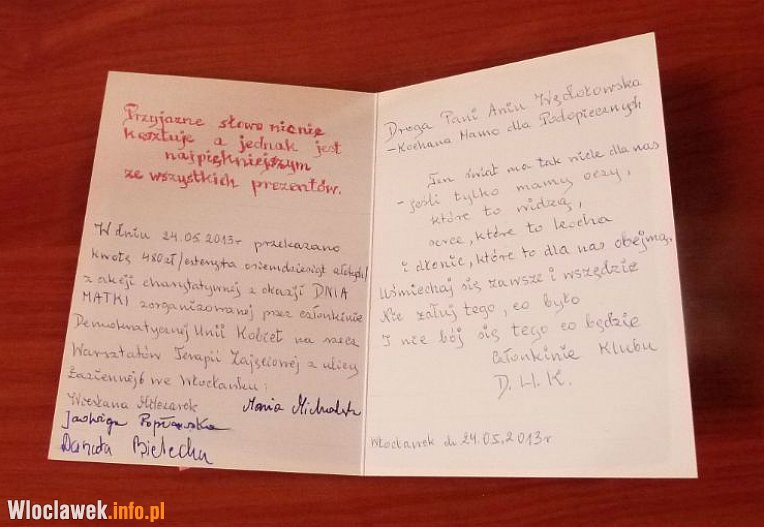 Przyjazne słowo nic nie
kosztuje a jednak jest
najpiękniejszym
ze wszystkich prezentów.
W dniu 24.05.2013r przekazano
kwotę 480zł/czterysta osiemdziesiąt złotych/
z akcji charytatywnej z okazji DNIA
MATKI zorganizowanej przez członkinie
Demokratycznej Unii Kobiet na rzecz
Warsztatów Terapii Zajęciowej z ulicy
Łaziennej 6 we Włocławku:
Maria
Jadwiga
Danuta Bielecka
Droga Pani Aniu
- Kochana Mamo dla Podopiecznych
Ten świat ma tak wiele dla nas
- jeśli tylko mamy oczy,
które to widzą,
serce, które to kocha
i dłonie, które to dla nas obejmą.
Uśmiechaj się zawsze i wszędzie
Nie żałuj tego, co było
I nie bój się tego co będzie
Członkinie Klubu
D.U.K.
Włocławek dn 24.05.2013r
Wloclawek.info.pl